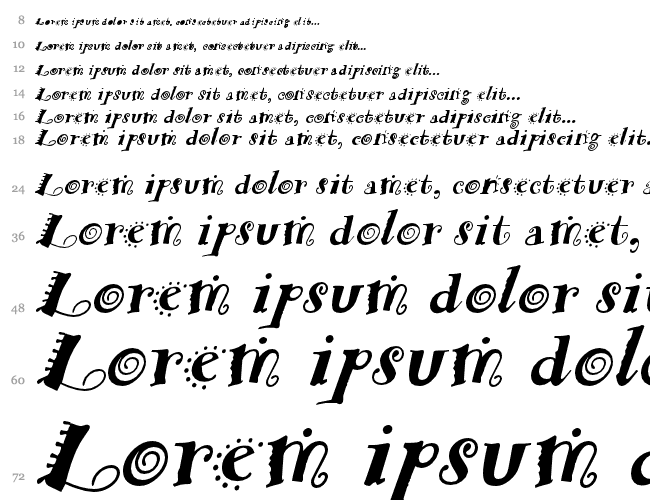 8 Lorem ipsum dolor sit amet, consectetuer adipiscing elit...
10 Lorem ipsum dolor sit amet, consectetuer adipiscing elit...
12 Lorem ipsum dolor sit amet, consectetuer adipiscing elit...
14 Lorem ipsum dolor sit amet, consectetuer adipiscing elit...
16 Lorem ipsum dolor sit amet, consectetuer adipiscing elit...
18 Lorem ipsum dolor sit amet, consectetuer adipiscing elit.
24 Lorem ipsum dolor sit amet, consectetuer a
36 Lorem ipsum dolor sit amet,
48 Lorem ipsum dolor si
60 Lorem ipsum dol
72 Lorem ipsum